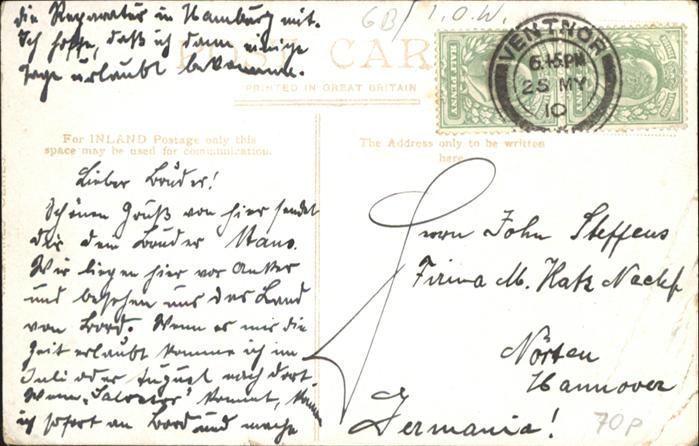 die Reparatur in Hamburg mit.
Ich hoffe, daß ich dann einige
Tage Urlaubt bekomme.
GB/ I.O.W.
POST CAR
PRINTED IN GREAT BRITAIN
HALF PENNY
VENTNOR
6.15PM
25 MY
10
For INLAND Postage only this
space may be used for communication.
The Address only to be written
here
Lieber Bruder!
Schönen Gruß von hier sendet
dir dein Bruder Hans.
Wir liegen hier vor Anker
und besehen uns das Land
von Bord. Wenn es mir die
Zeit erlaubt komme ich im
Juli oder August nach dort.
Wenn "Salvator" kommt,
ich sofort an Bord und mache
Herrn John Steffens
Firma M. Katz Nachf
Nörten
Hannover
Germania!
70p